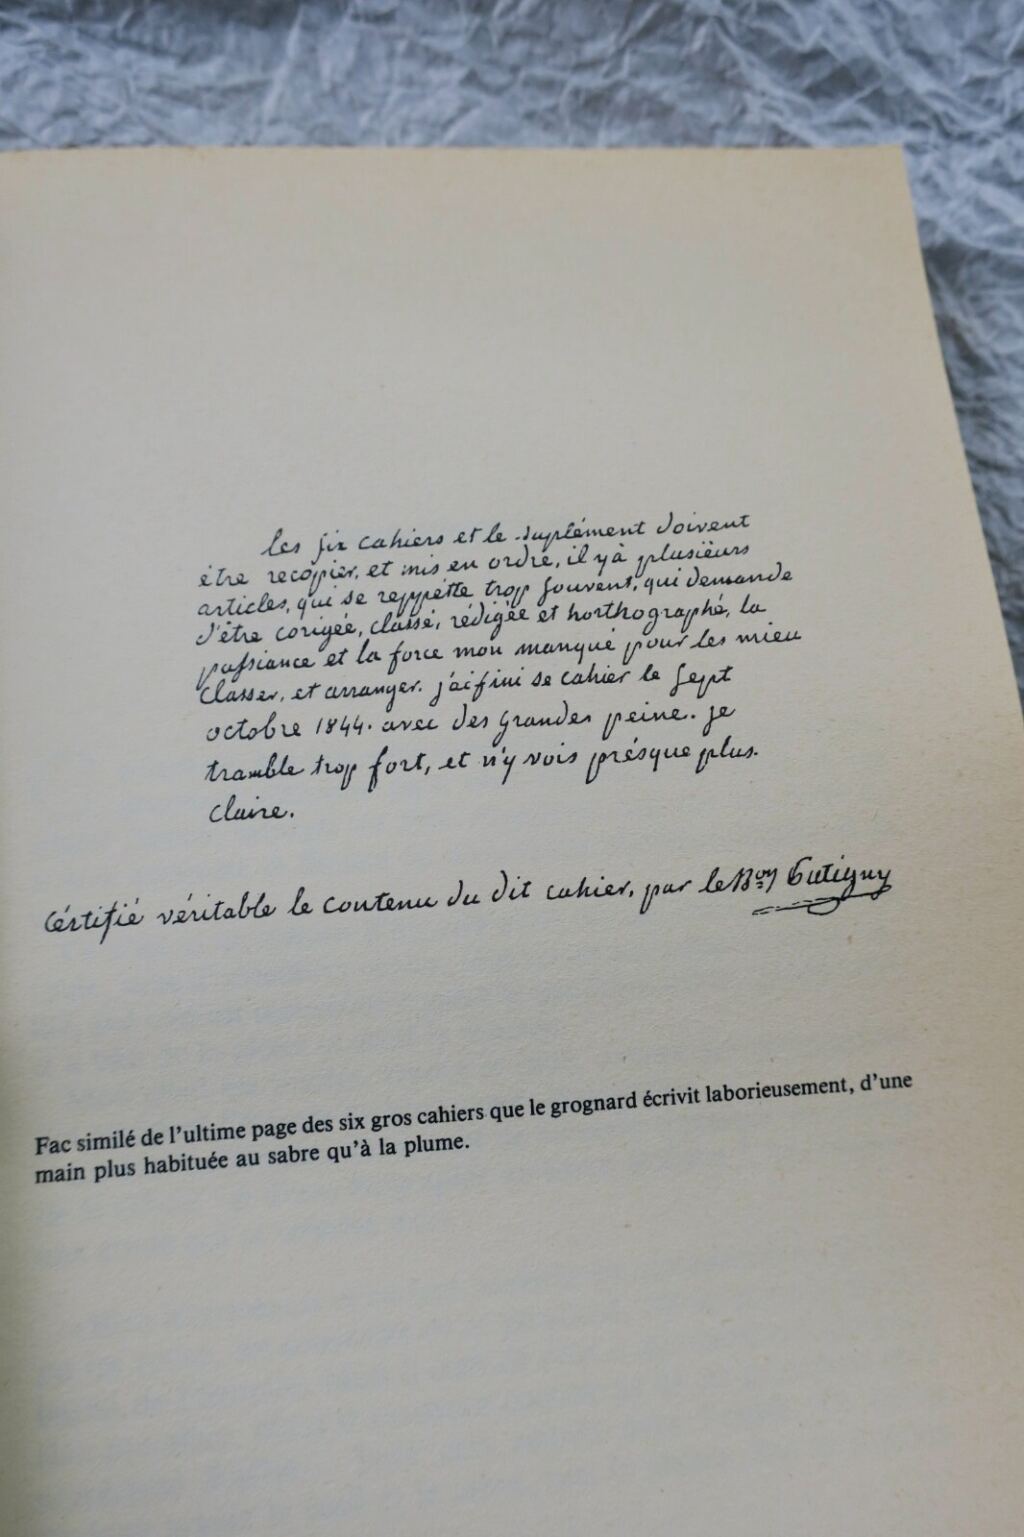 les six cahiers et le suplément doivent
étre recopier, et mis en ordre, il yà plusiëurs
articles, qui se reppétte trop souvent, qui demande
d'être corigée, classé, rédigée et horthographé, la
passiance et la force mon manqué pour les mieu
classer, et arranger. j'ai fini se cahier le sept
octobre 1844. avec des grandes peine. je
tramble trop fort, et n'y vois présque plus.
claire.
Cértifié véritable le contenu du dit cahier, par le Bon Putigny
Fac similé de l'ultime page des six gros cahiers que le grognard écrivit laborieusement, d'une
main plus habituée au sabre qu'à la plume.